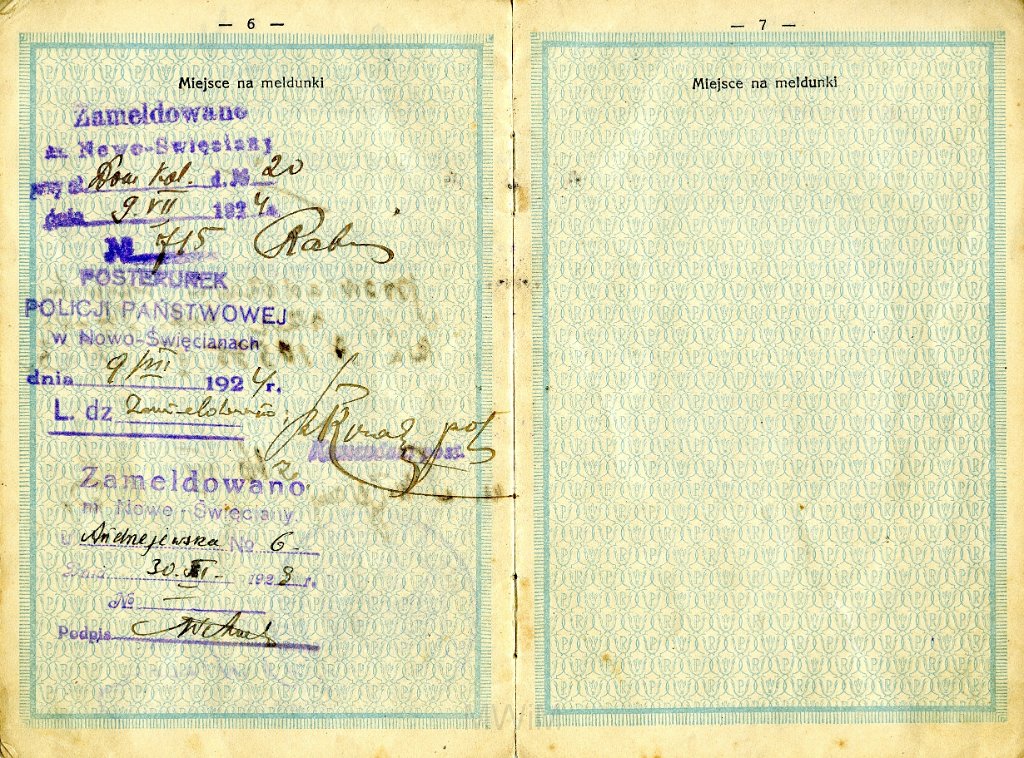 — 6 —
Miejsce na meldunki
Zameldowano
m. Nowo-Święciany
przy ul. Dom Kol. d. № 20
dnia 9 VII 1924 r.
№ 715
POSTERUNEK
POLICJI PAŃSTWOWEJ
w Nowo-Święcianach
dnia 9/VII 1924 r.
L. dz Zameldowano
Zameldowano
m. Nowe-Święciany.
u. Andrzejewska № 6.
Dnia 30 XI 1928 r.
№
Podpis
— 7 —
Miejsce na meldunki